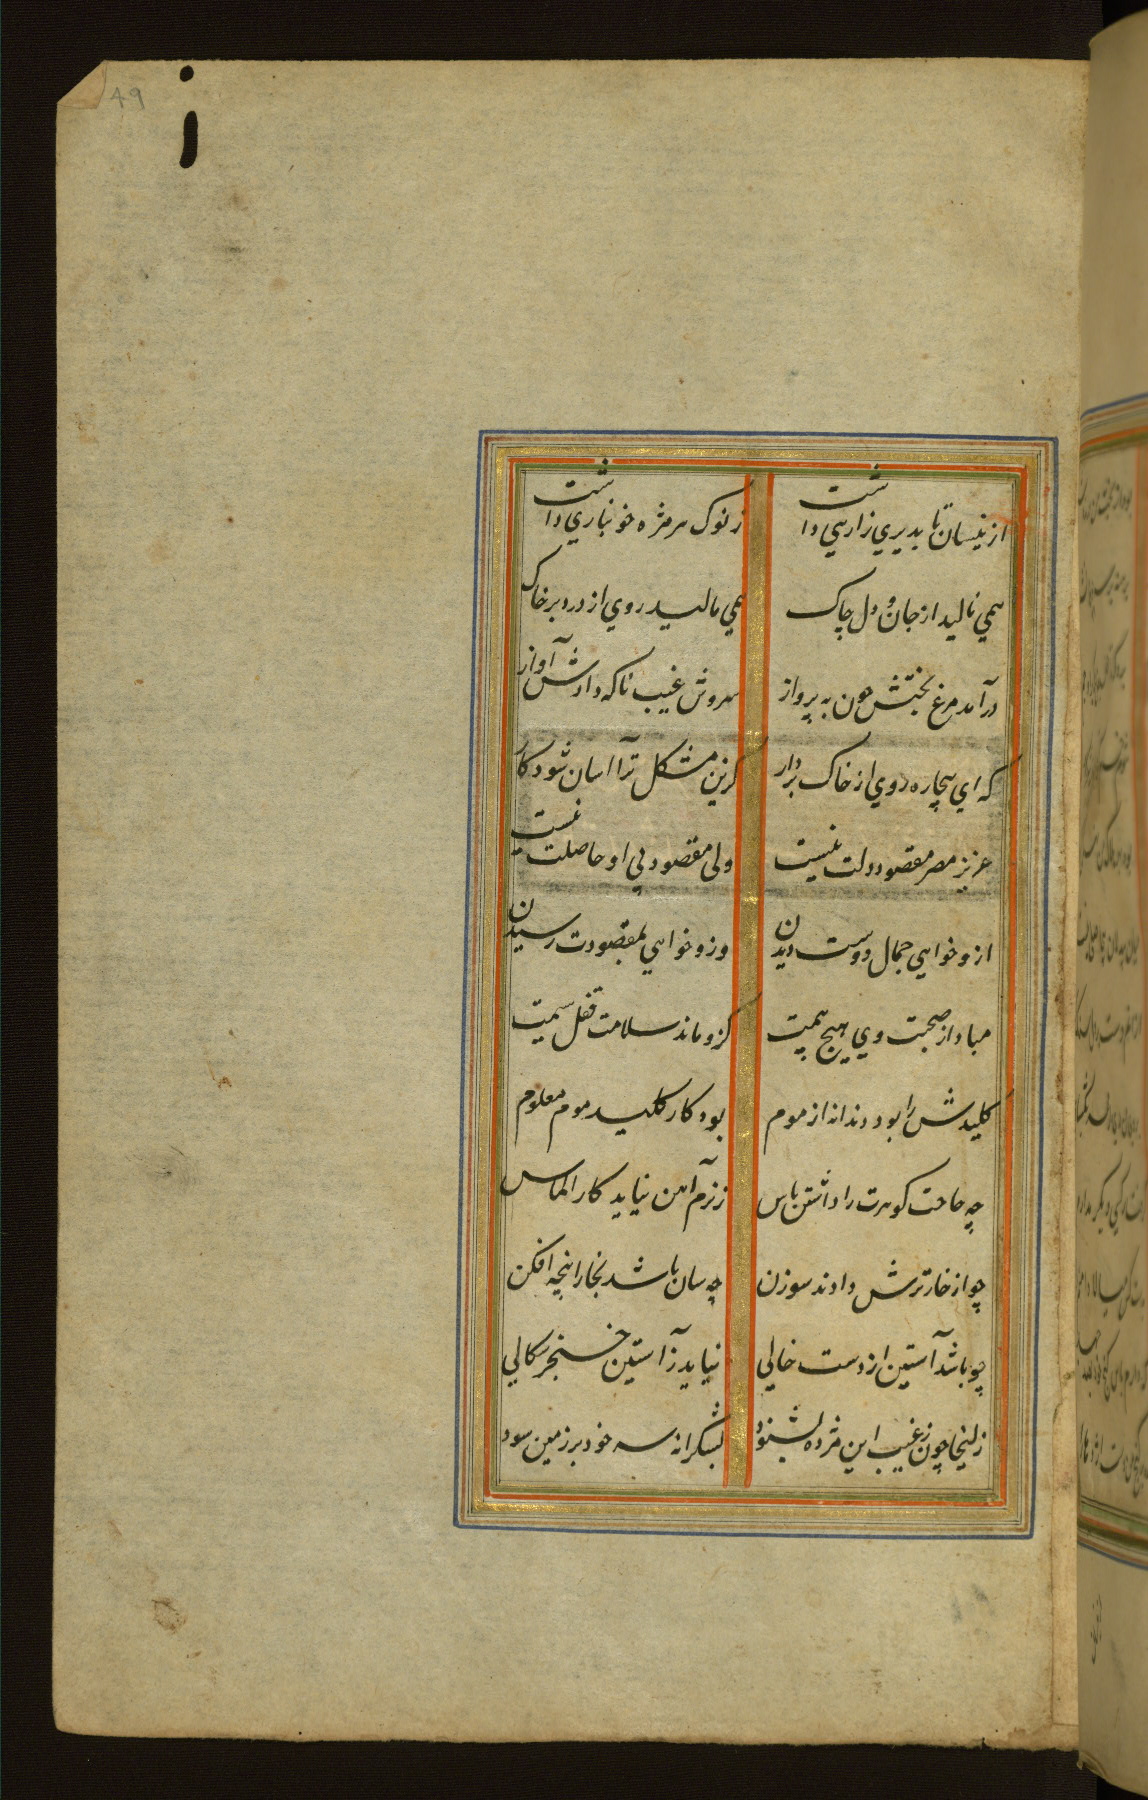 49
ازینسان تا بدیری زاریی داشت
ز نوک هر مژه خونباری داشت
همی نالید از جان و دل چاک
همی مالید روی از درد بر خاک
درآمد مرغ بختش چون به پرواز
سروش غیب ناکه دادش آواز
که ای بیچاره روی از خاک بردار
کزین مشکل ترا آسان شود کار
عزیز مصر مقصود دلت نیست
ولی مقصود بی او حاصلت نیست
ازو خواهی جمال دوست دیدن
وزو خواهی بمقصودت رسیدن
مباد از صحبت وی هیچ بیمت
کزو ماند سلامت قفل سیمت
کلیدش را بود دندانه از موم
بود کار کلید موم معلوم
چه حاجت کوهرت را داشتن پاس
ز نرم آهن نیاید کار الماس
چو از خار ترش دادند سوزن
چه سان باشد بخارا پنجه افکن
چو باشد آستین از دست خالی
نیاید ز آستین خنجر سکالی
زلیخا چون ز غیب این مژده بشنود
بشکرانه سر خود بر زمین سود